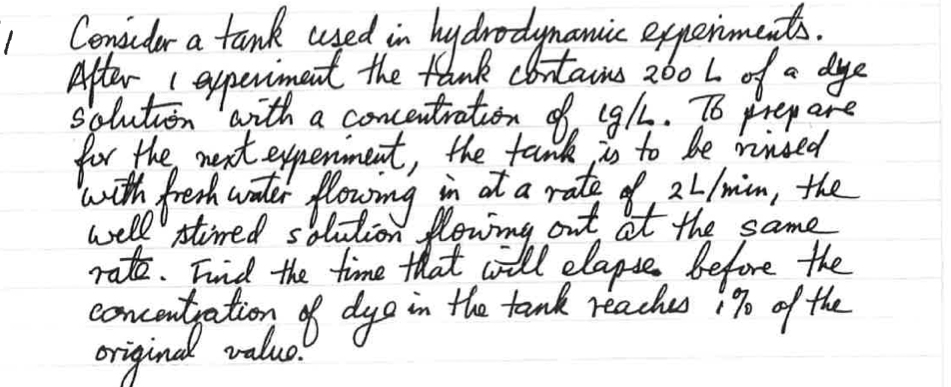 1 Consider a tank used in hydrodynamic experiments.
After 1 experiment the tank contains 200 L of a dye
solution with a concentration of 1g/L. To prepare
for the next experiment, the tank is to be rinsed
with fresh water flowing in at a rate of 2L/min, the
well stirred solution flowing out at the same
rate. Find the time that will elapse before the
concentration of dye in the tank reaches 1% of the
original value.